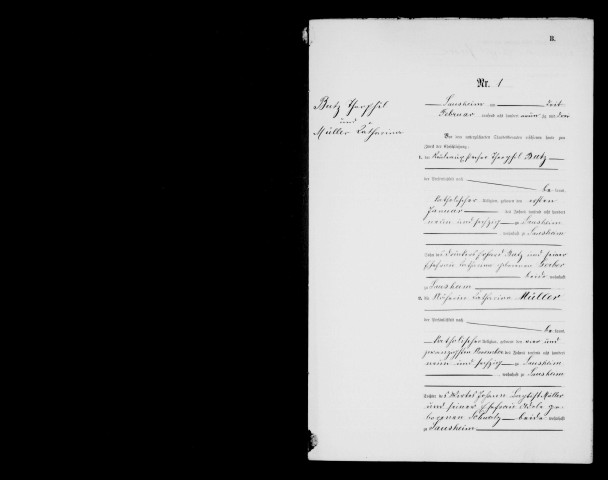 B.
Nr. 1
Batz Theophil
und
Müller Katharina
Sausheim am
Februar tausend acht hundert neunzig und drei
Vor dem unterzeichneten Standesbeamten erschienen heute zum
Zweck der Eheschließung:
1. der Theophil Batz
der Persönlichkeit nach
be kannt,
katholischer Religion, geboren den ersten
Januar des Jahres tausend acht hundert
neun und sechzig zu Sausheim
, wohnhaft zu Sausheim
Sohn des Batz und seiner
Ehefrau Katharina geborenen
beide wohnhaft
zu Sausheim
2. die Näherin Katharina Müller
der Persönlichkeit nach
be kannt,
katholischer Religion, geboren den vier und
zwanzigsten des Jahres tausend acht hundert
neun und sechzig zu Sausheim
, wohnhaft zu Sausheim
Tochter des Wirtes Johann Baptist Müller
und seiner Ehefrau Adele ge-
borenen Schmitz beide wohnhaft
zu Sausheim